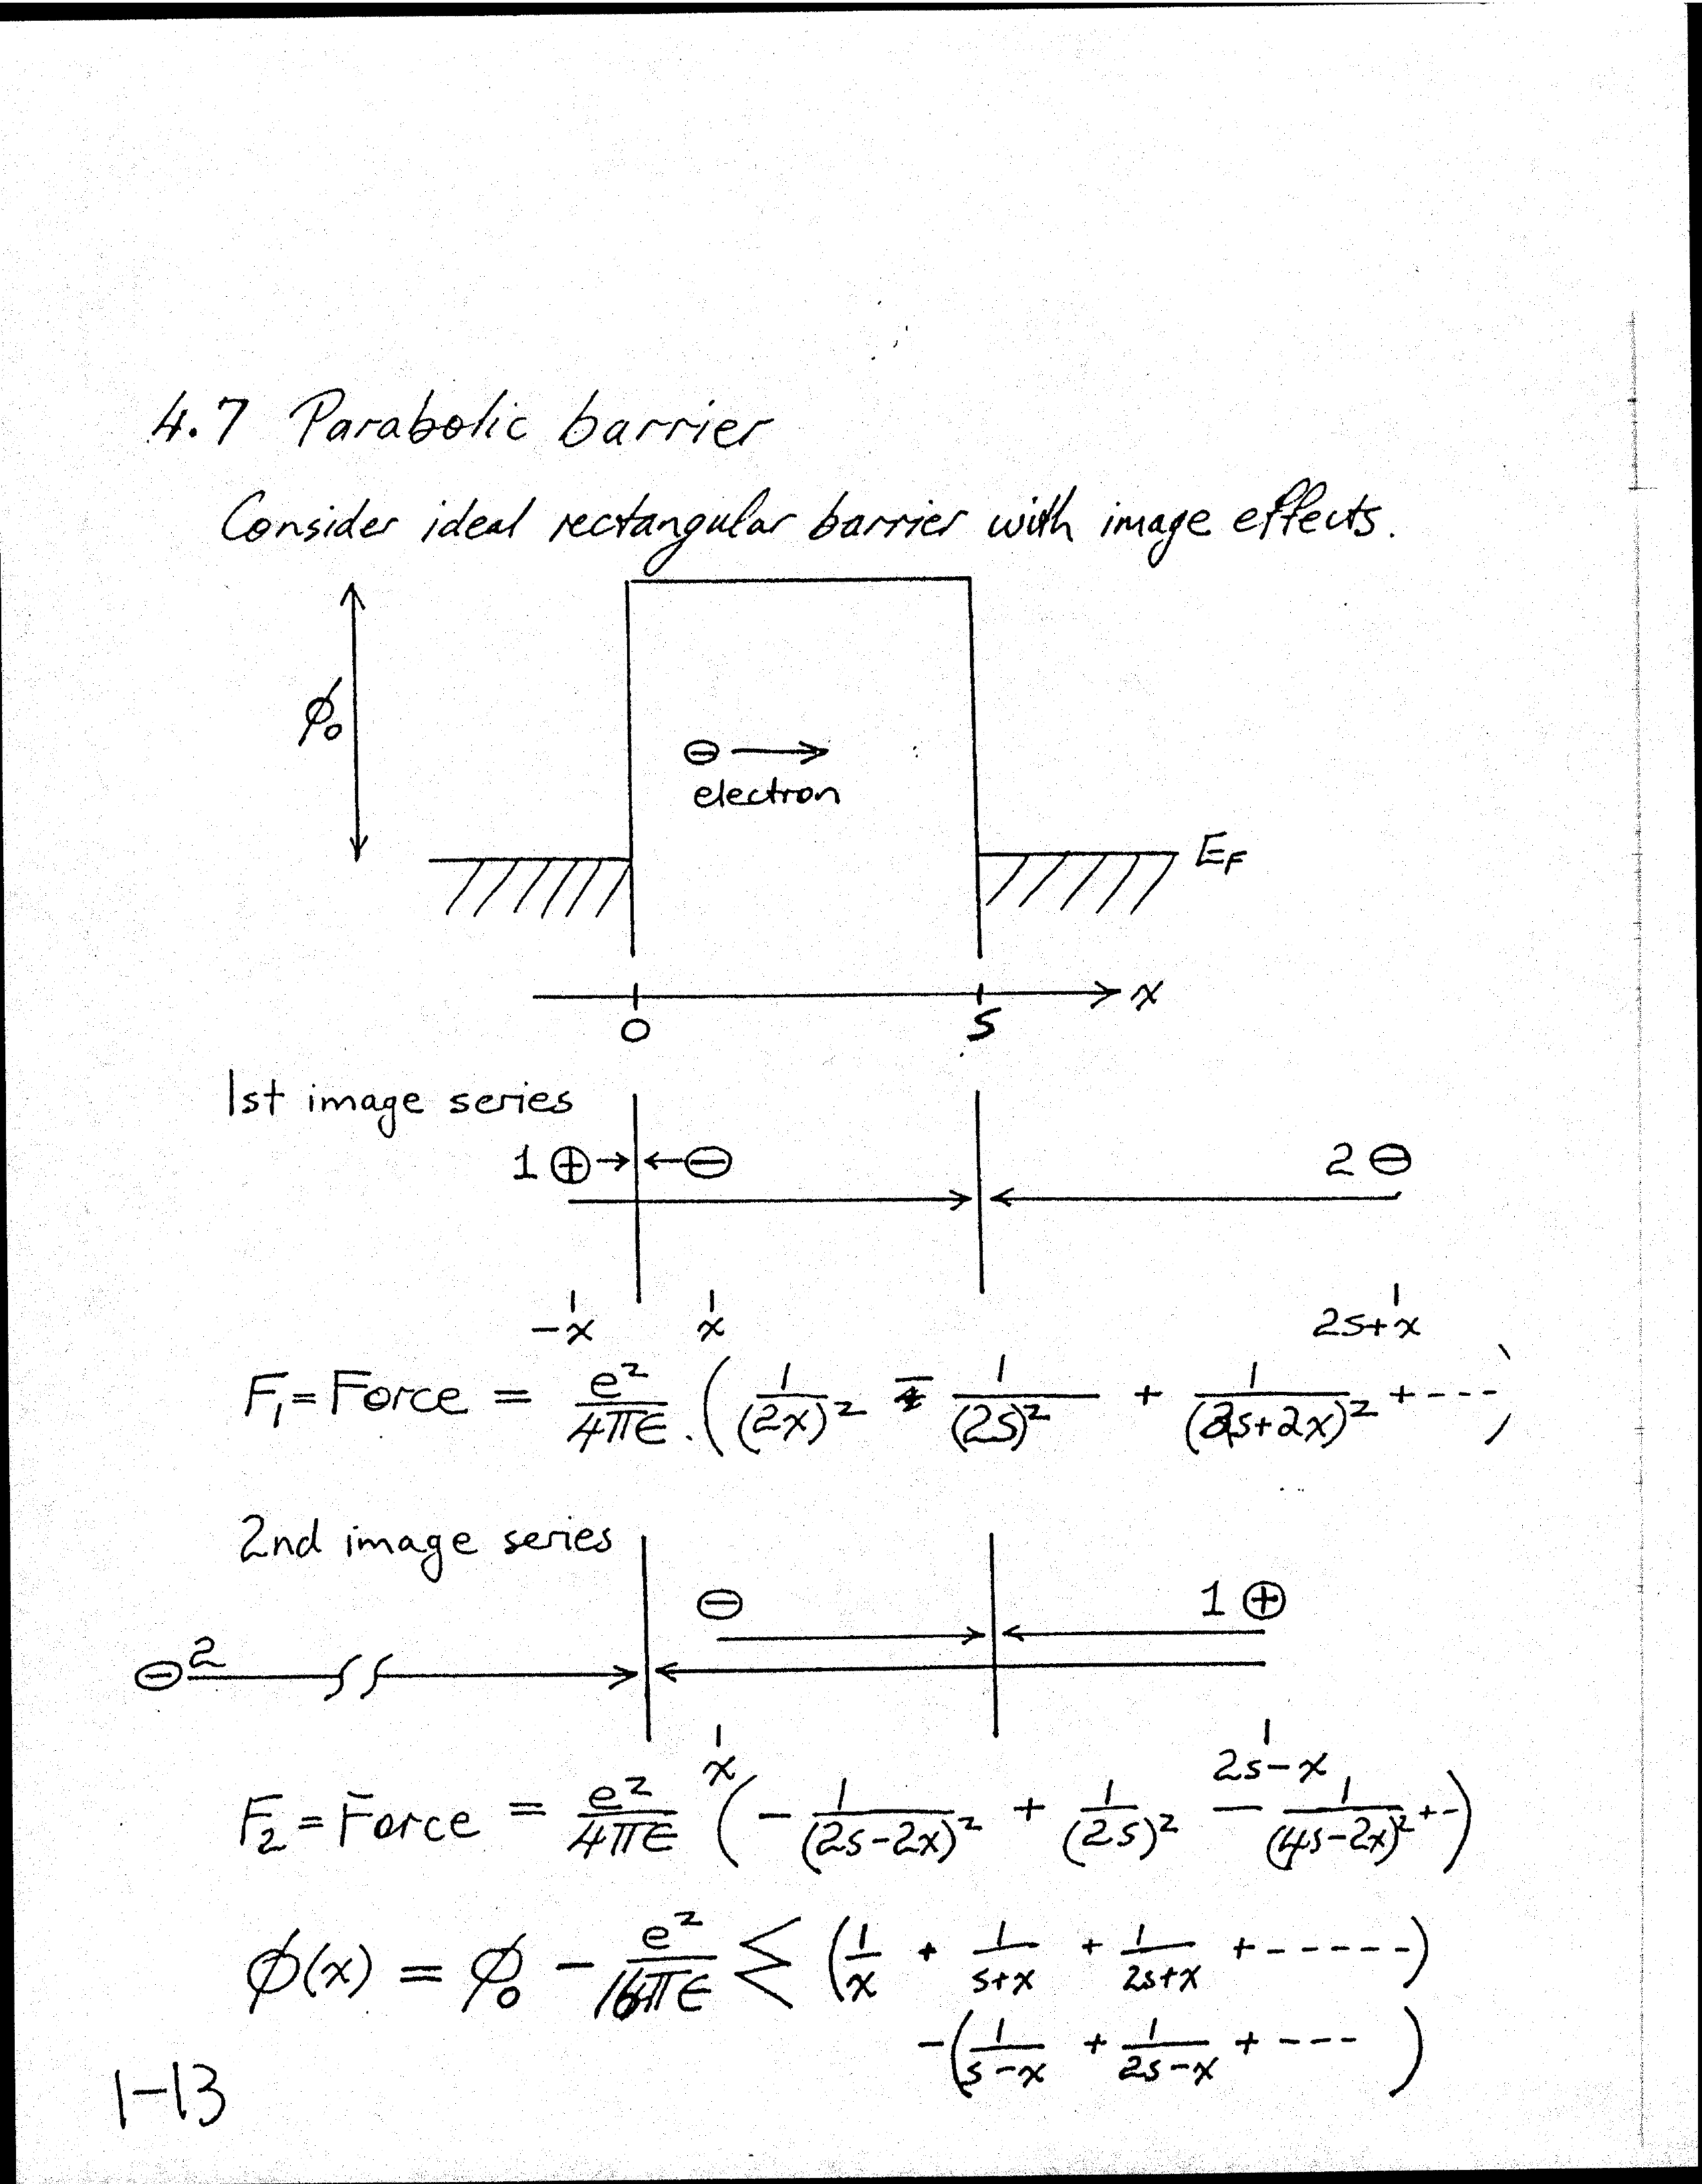 4.7 Parabolic barrier
Consider ideal rectangular barrier with image effects.
ϕ₀
⊖ →
electron
E_F
0 s x
1st image series
1 ⊕→ ←⊖ 2 ⊖
-x x 2s+x
F₁ = Force = e²/4πϵ . ( 1/(2x)² - 1/(2s)² + 1/(2s+2x)² + - - - )
2nd image series
⊖ 1 ⊕
⊖ 2
x 2s-x
F₂ = Force = e²/4πϵ ( - 1/(2s-2x)² + 1/(2s)² - 1/(4s-2x)² + - )
ϕ(x) = ϕ₀ - e²/16πϵ Σ ( 1/x + 1/s+x + 1/2s+x + - - - - - )
-( 1/s-x + 1/2s-x + - - - )
1-13